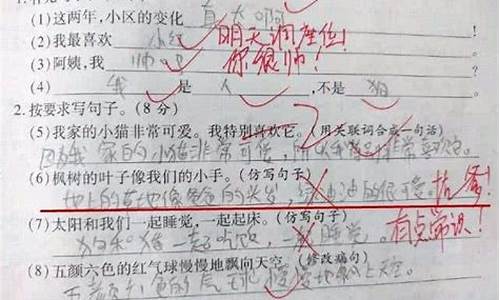 (1)这两年,小区的变化 真大啊
(2)我最喜欢 小红 明天调座位!
(3)阿姨,我 帅吧 你很帅!
(4) 我 是 人 ,不是 狗
2.按要求写句子。(8分)
(5)我家的小猫非常可爱。我特别喜欢它。(用关联词合成一句话)
因为我家的小猫非常可爱,所以我特别非常喜欢它。
(6)枫树的叶子像我们的小手。(仿写句子)
地上的草地像爸爸的头发,绿油油的很可爱。
(7)太阳和我们一起睡觉,一起起床。(仿写句子)
狗和猪一起吃饭,一起睡觉。 有点常识!
(8)五颜六色的红气球慢慢地飘向天空。(修改病句)
气球慢慢地飘上天空。